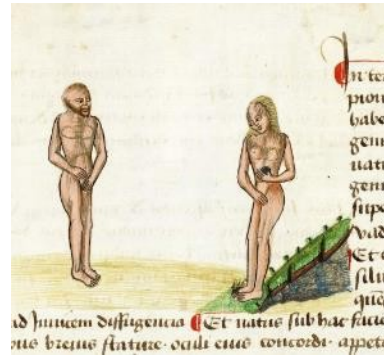 In ter
pion
habe
geni
nati
geni
supe
vad
Et
simi
que
ad Inuicem diffugiencia Et natus sub hac facie
breuis stature · oculi eius concordi· appeti